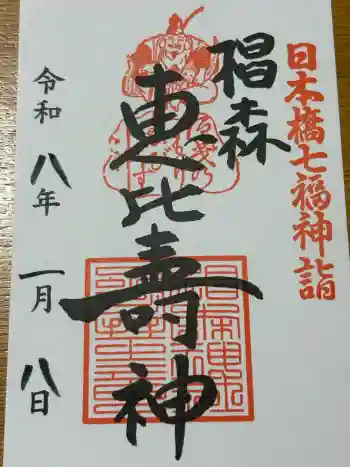 日本橋七福神詣
椙森
恵比寿神
令和八年
一月八日